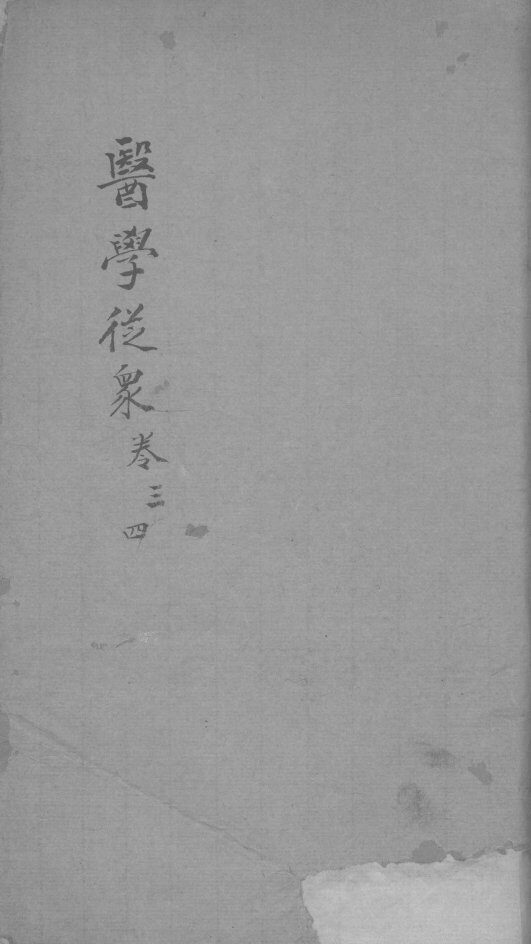 醫學從衆卷三四